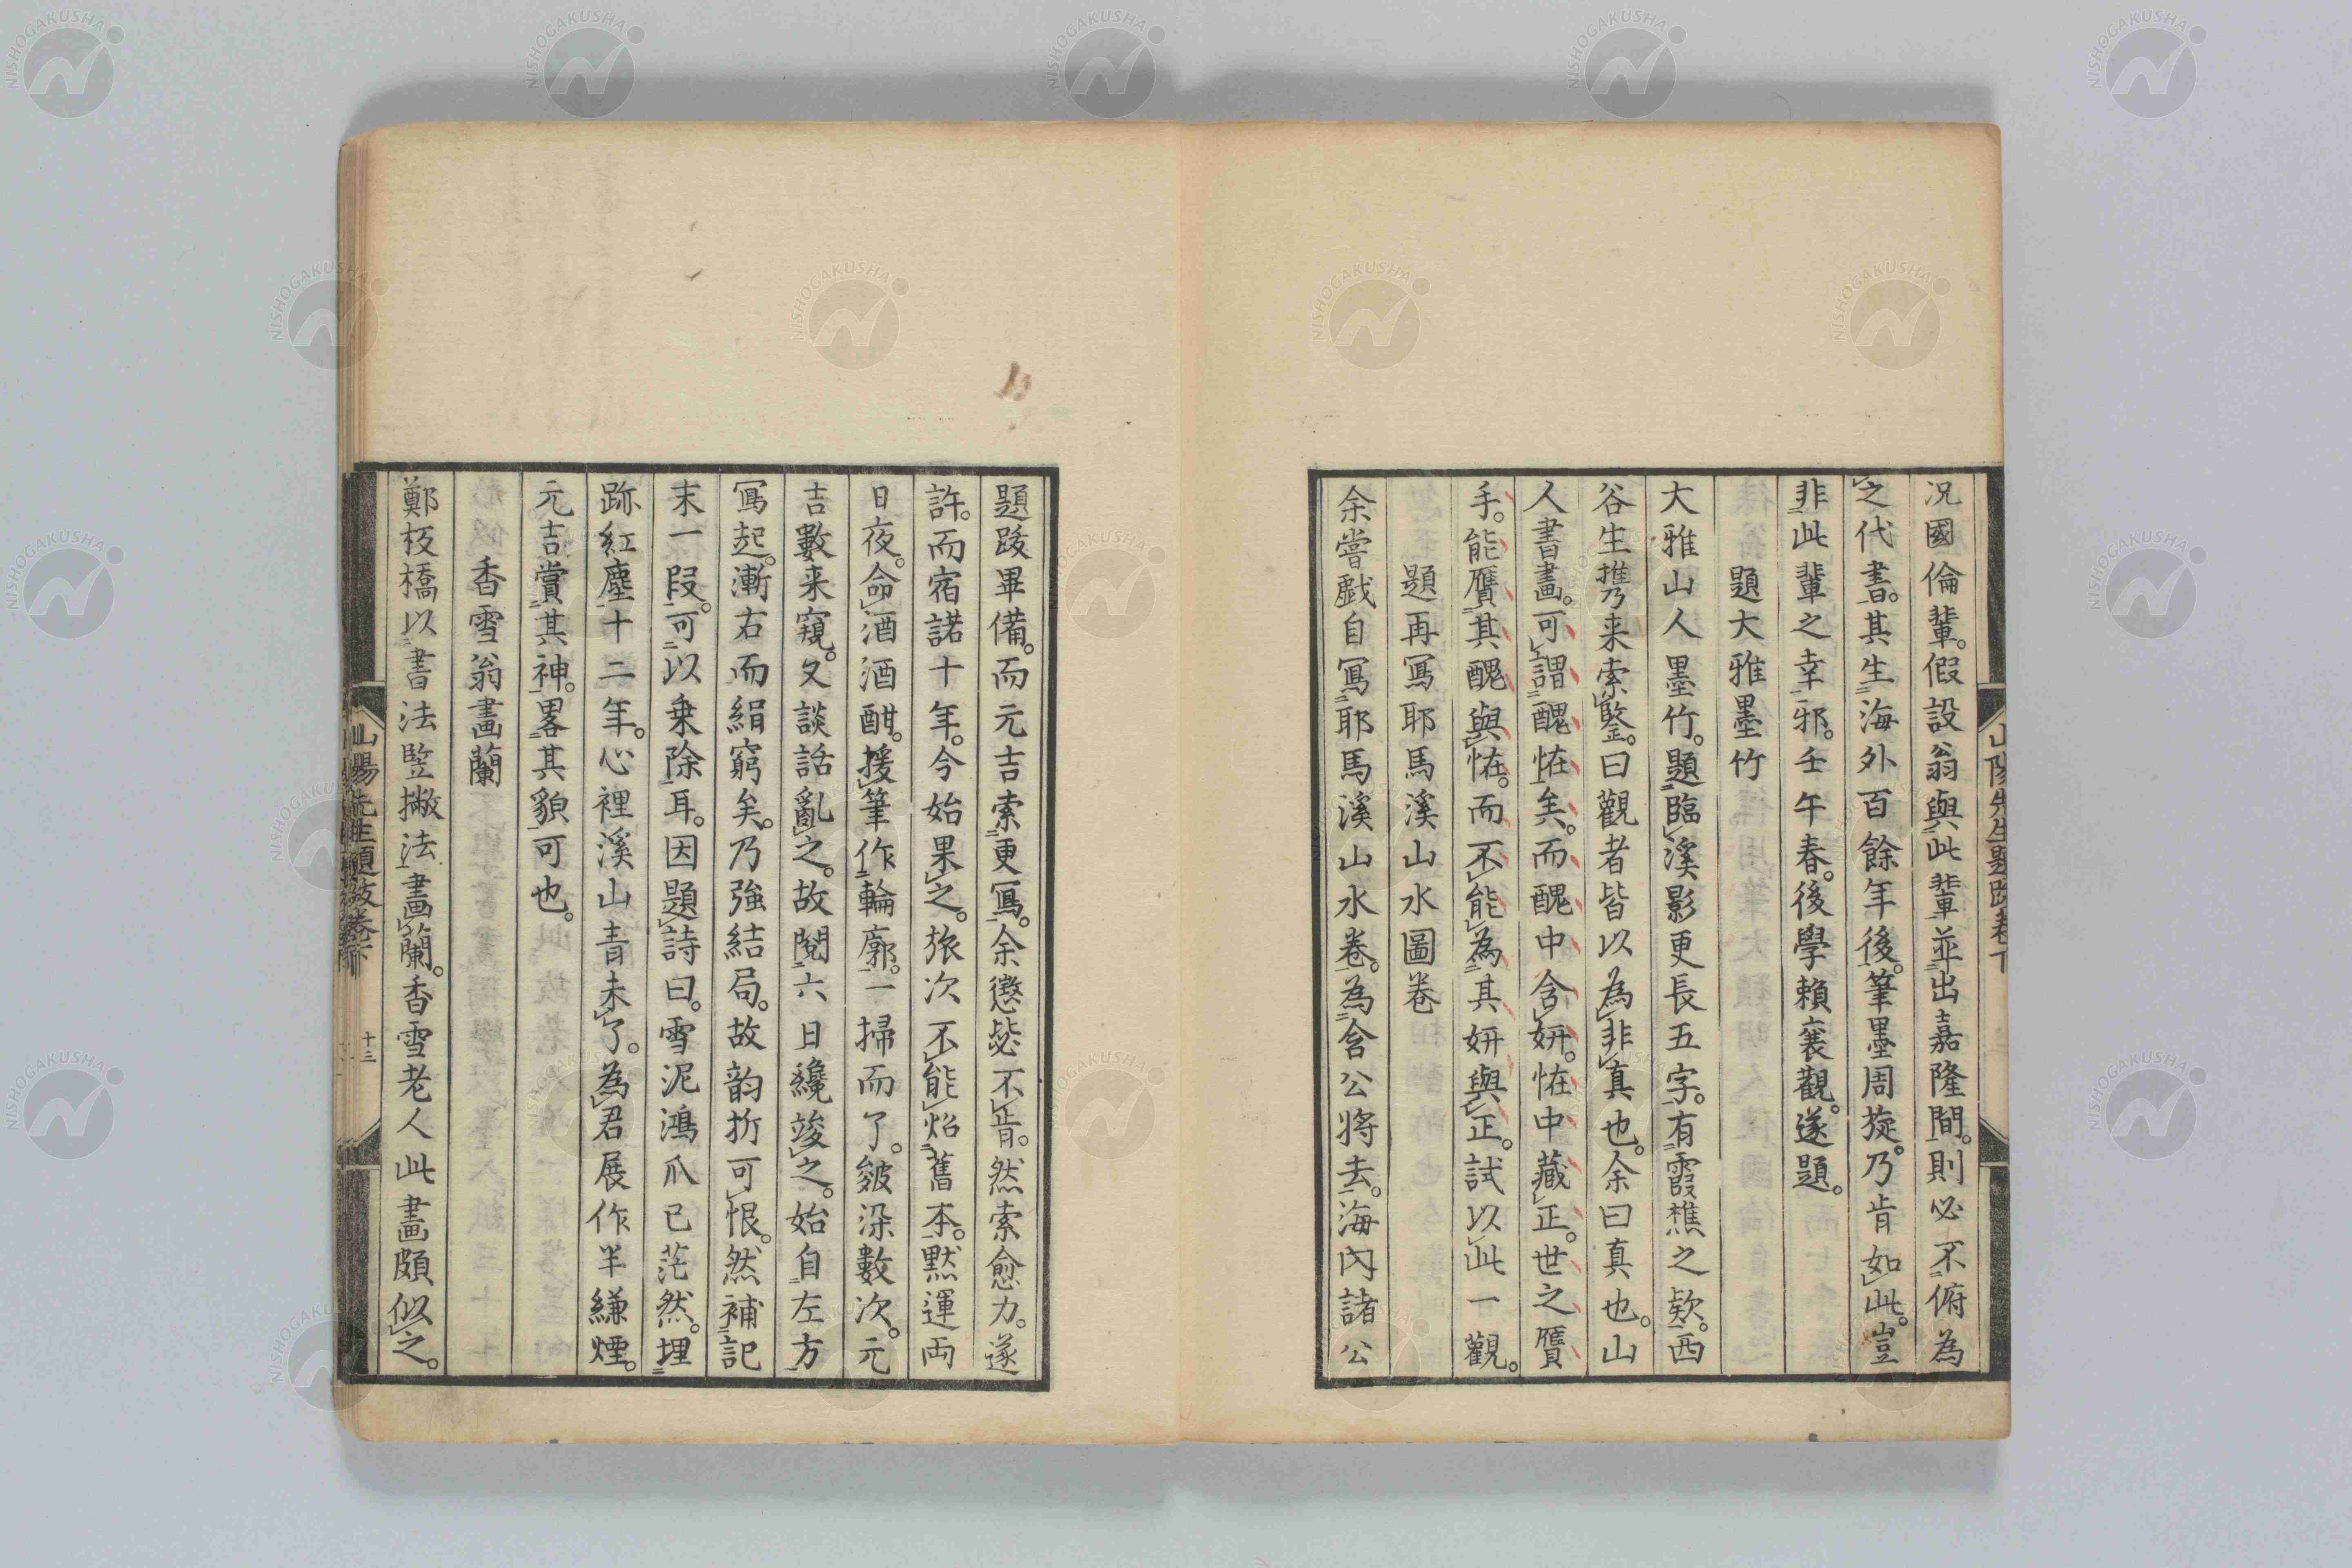 況國倫輩。假設翁與此輩並出嘉隆間。則必不俯為
之代書。其生海外百餘年後。筆墨周旋。乃肯如此。豈
非此輩之幸邪。壬午春。後學賴襄觀。遂題。
題大雅墨竹
大雅山人墨竹。題臨溪影更長五字。有霞樵之欵。西
谷生携乃来索鑒。曰觀者皆以為非真也。余曰真也。山
人書畫。可謂醜恠矣。而醜中含妍。恠中藏正。世之贋
手。能贋其醜與恠。而不能為其妍與正。試以此一觀。
題再寫耶馬溪山水圖卷
余嘗戯自寫耶馬溪山水卷。為含公將去。海内諸公
山陽先生題跋卷下
題跋畢備。而元吉索更寫。余懲毖不肯。然索愈力。遂
許。而宿諾十年。今始果之。旅次不能炤舊本。黙運両
日夜。命酒酒酣。援筆作輪廓。一掃而了。皴染數次。元
吉數来窺。又談話亂之。故閲六日纔竣之。始自左方
寫起。漸右而絹窮矣。乃強結局。故韵折可恨。然補記
末一叚。可以乗除耳。因題詩曰。雪泥鴻爪已茫然。埋
跡紅塵十二年。心裡溪山青未了。為君展作半縑煙。
元吉賞其神。畧其貌可也。
香雪翁畫蘭
鄭板橋以書法竪撇法畫蘭。香雪老人此畫頗似之。
山陽先生題跋卷下
十三
NISHOGAKUSHA